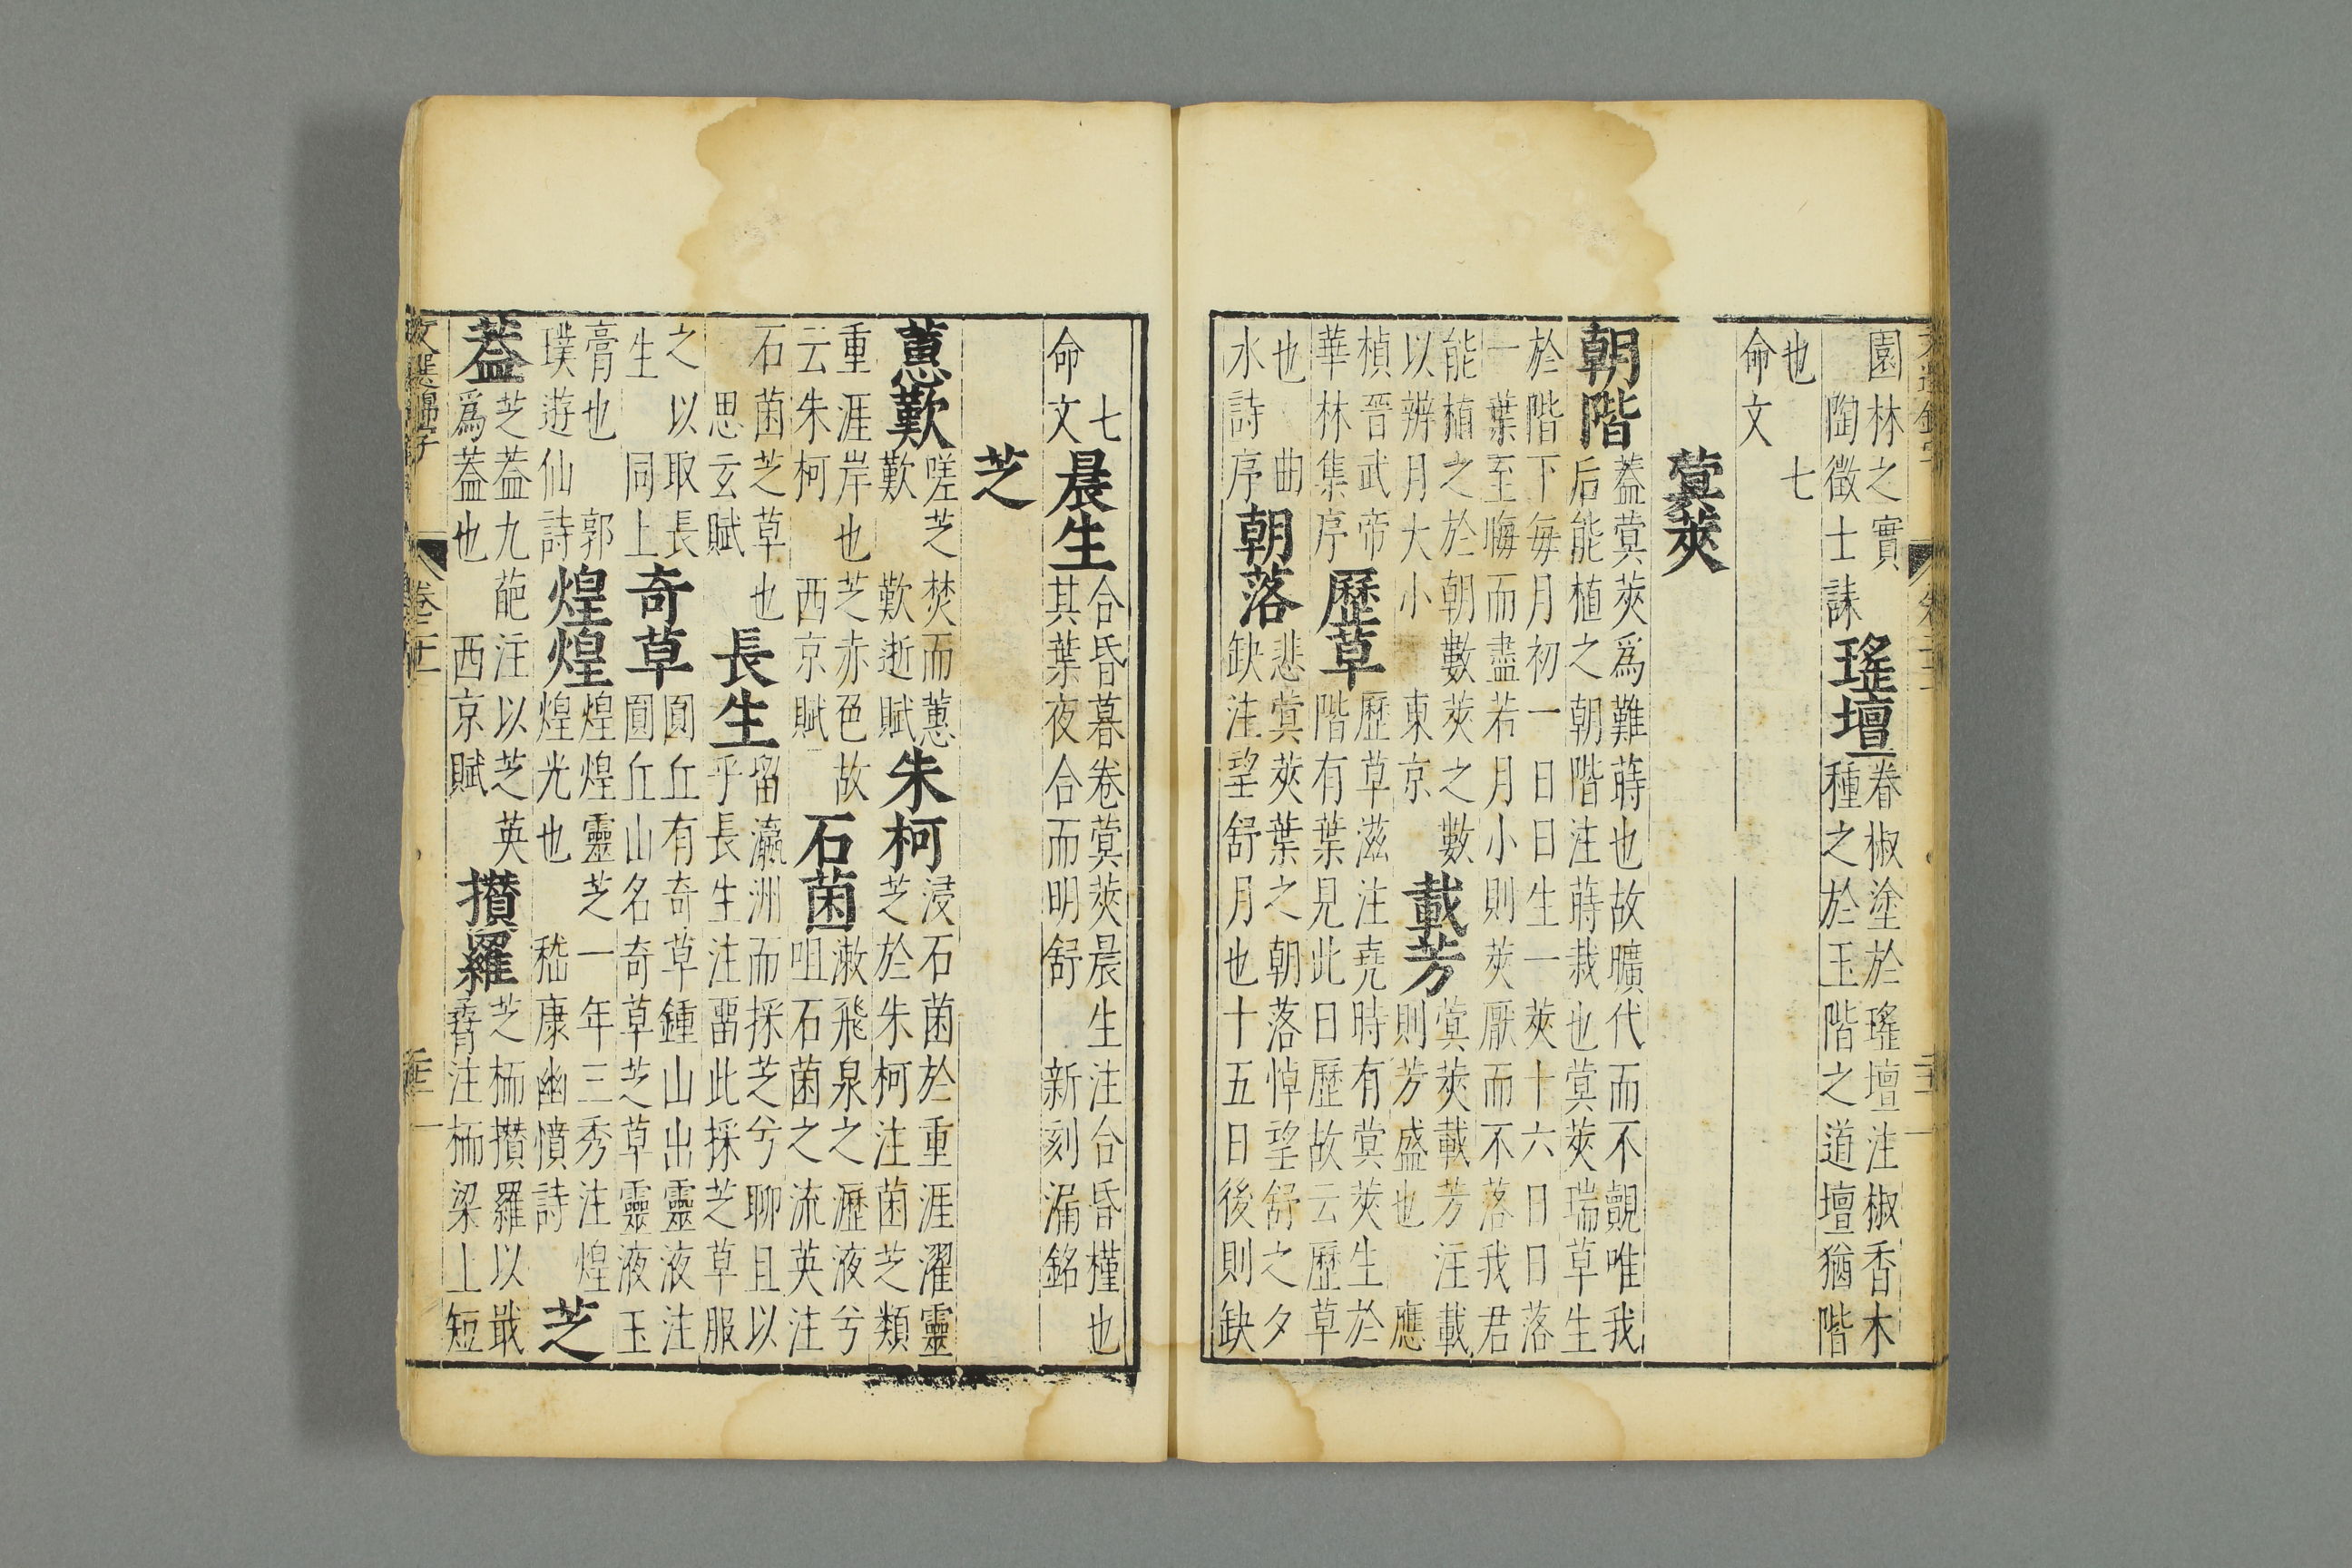 園林之實
陶徵士誄
瑤壇
春椒塗於瑤壇注椒香木
種之於玉階之道壇猶階
也　七
命文
蓂莢
朝階
蓋蓂莢爲難蒔也故曠代而不覿唯我
后能植之朝階注蒔栽也蓂莢瑞草生
於階下每月初一日日生一莢十六日日落
一葉至晦而盡若月小則莢厭而不落我君
能植之於朝數莢之數
以辨月大小　東京
載芳
蓂莢載芳注載
則芳盛也　應
楨晉武帝
華林集序
歷草
歷草滋注堯時有蓂莢生於
階有葉見此日歷故云歷草
也　曲
水詩序
朝落
悲蓂莢葉之朝落悼望舒之夕
缺注望舒月也十五日後則缺
七
命文
晨生
合昏暮卷蓂莢晨生注合昏槿也
其葉夜合而明舒　新刻漏銘
芝
蕙歎
嗟芝焚而蕙
歎　歎逝賦
朱柯
浸石菌於重涯濯靈
芝於朱柯注菌芝類
重涯岸也芝赤色故
云朱柯　西京賦
石菌
漱飛泉之瀝液兮
咀石菌之流英注
石菌芝草也
思玄賦
長生
留瀛洲而採芝兮聊且以
乎長生注畱此採芝草服
之以取長
生　同上
奇草
圓丘有奇草鍾山出靈液注
圓丘山名奇草芝草靈液玉
膏也　郭
璞遊仙詩
煌煌
煌煌靈芝一年三秀注煌
煌光也　嵇康幽憤詩
芝
蓋
芝蓋九葩注以芝英
爲蓋也　西京賦
攢羅
芝栭攢羅以戢
孴注栭梁上短
文選錦字　卷二十一